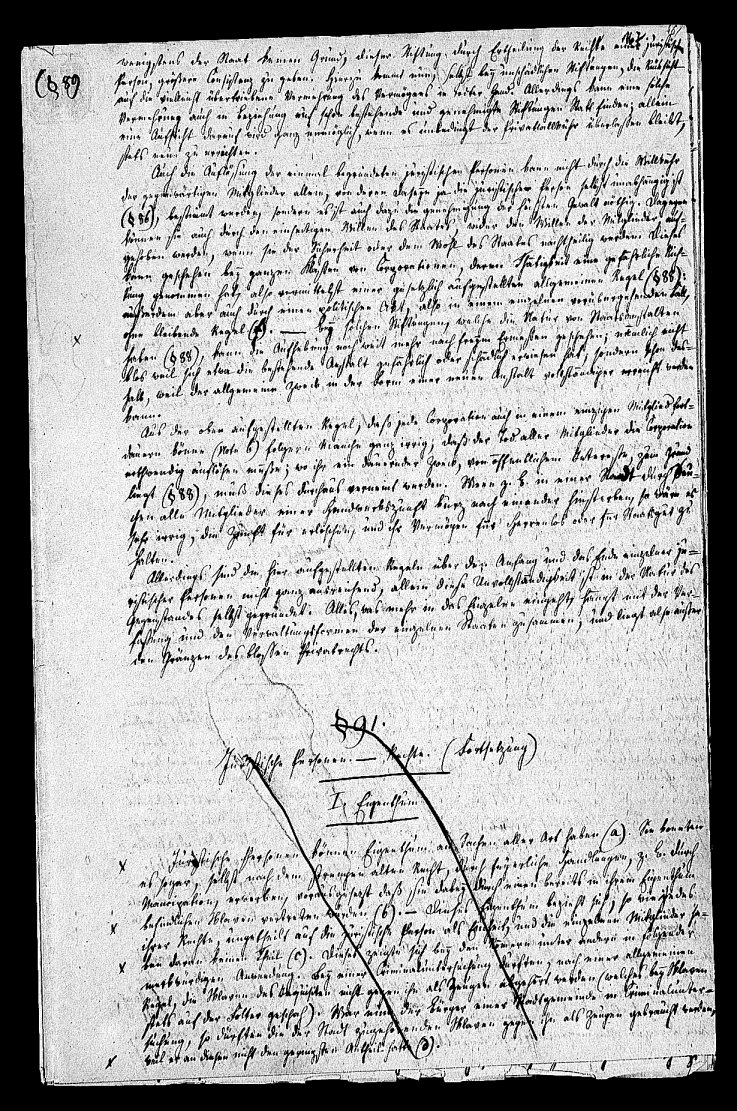 (§ 89)
wenigstens der Staat keinen Grund, dieser Stiftung durch Ertheilung der Rechte einer juristischen
Person, größere Consistenz zu geben. Hierzu kommt nun, selbst bey unschädlichen Stiftungen, die Rücksicht
auf die vielleicht übertriebene Vermehrung des Vermögens in todter Hand. Allerdings kann eine solche
Vermehrung auch in Beziehung auf schon bestehende und genehmigte Stiftungen Statt finden; allein
eine Aufsicht darauf wird ganz unmöglich, wenn es unbedingt der Privatwillkühr überlassen bleibt,
stets neue zu errichten.
Auch die Auflösung der einmal begründeten juristischen Personen kann nicht durch die Willkühr
der gegenwärtigen Mitglieder allein, von deren Daseyn ja die juristische Person selbst unabhängig ist
(§ 86), bestimmt werden, sondern es ist auch dazu die Genehmigung der höchsten Gewalt nöthig. Dagegen
können sie auch durch den einseitigen Willen des Staates, wider den Willen der Mitglieder auf-
gehoben werden, wenn sie der Sicherheit oder dem Wohl des Staates nachtheilig werden. Dieses
kann geschehen bey ganzen Klassen von Corporationen, deren Thätigkeit eine gefährliche Rich-
tung genommen hat, also vermittelst einer gesetzlich aufgestellten allgemeinen Regel (§ 88):
außerdem aber auch durch einen politischen Akt, also in einem einzelnen vorübergehenden Fall,
ohne bleibende Regel — bey solchen Stiftungen, welche die Natur von Staatsanstalten
haben (§ 88), kann die Aufhebung noch weit mehr nach freyem Ermessen geschehen; nämlich nicht
blos weil sich etwa die bestehende Anstalt gefährlich oder schädlich erwiesen hat, sondern schon des-
halb, weil der allgemeine Zweck in der Form einer neuen Anstalt vollständiger erreicht werden
kann.
Aus der oben aufgestellten Regel, daß jede Corporation auch in einem einzigen Mitglied fort-
dauern könne (Note b) folgern Manche ganz irrig, daß der Tod aller Mitglieder die Corporation
nothwendig auflösen müsse; wo ihr ein dauernder Zweck, von öffentlichem Interesse, zum Grund
liegt (§ 88), muß dieses durchaus verneint werden. Wenn z. B. in einer Stadt durch Seu-
chen alle Mitglieder einer Handwerkszunft kurz nach einander hinsterben, so wäre es
sehr irrig, die Zunft für erloschen, und ihr Vermögen für herrenlos oder für Staatsgut zu
halten.
Allerdings sind die hier aufgestellten Regeln über den Anfang und das Ende einzelner ju-
ristischer Personen nicht ganz ausreichend, allein diese Unvollständigkeit ist in der Natur des
Gegenstandes selbst gegründet. Alles, was mehr in das Einzelne eingeht, hängt mit der Ver-
fassung und den Verwaltungsformen der einzelnen Staaten zusammen, und liegt also außer
den Gränzen des bloßen Privatrechts.
§ 91.
Juristische Personen. — Rechte. (Fortsetzung)
I, Eigenthum
Juristische Personen können Eigenthum an Sachen aller Art haben (a). Sie konnten
es sogar, selbst nach dem strengen alten Recht, durch feyerliche Handlungen, z. B. durch
Mancipation, erwerben, vorausgesetzt daß sie dabey durch einen bereits in ihrem Eigenthum
befindlichen Sklaven vertreten wurden (b). — Dieses Eigenthum bezieht sich, so wie jedes
ihrer Rechte, ungetheilt auf die juristische Person als Einheit, und die einzelnen Mitglieder ha-
ben daran keinen Theil (c). Dieses zeigte sich bey den Römern unter andern in folgender
merkwürdigen Anwendung. Bey einer Criminaluntersuchung durften, nach einer allgemeinen
Regel, die Sklaven des Beschuldigten nicht gegen ihn als Zeugen angehört werden (welches bey Sklaven
stets auf der Folter geschah). War nun der Bürger einer Stadtgemeinde in Criminalunter-
suchung, so durften die der Stadt zugehörenden Sklaven gegen ihn als Zeugen gebraucht werden,
weil er an diesen nicht den geringsten Antheil hatte (d).